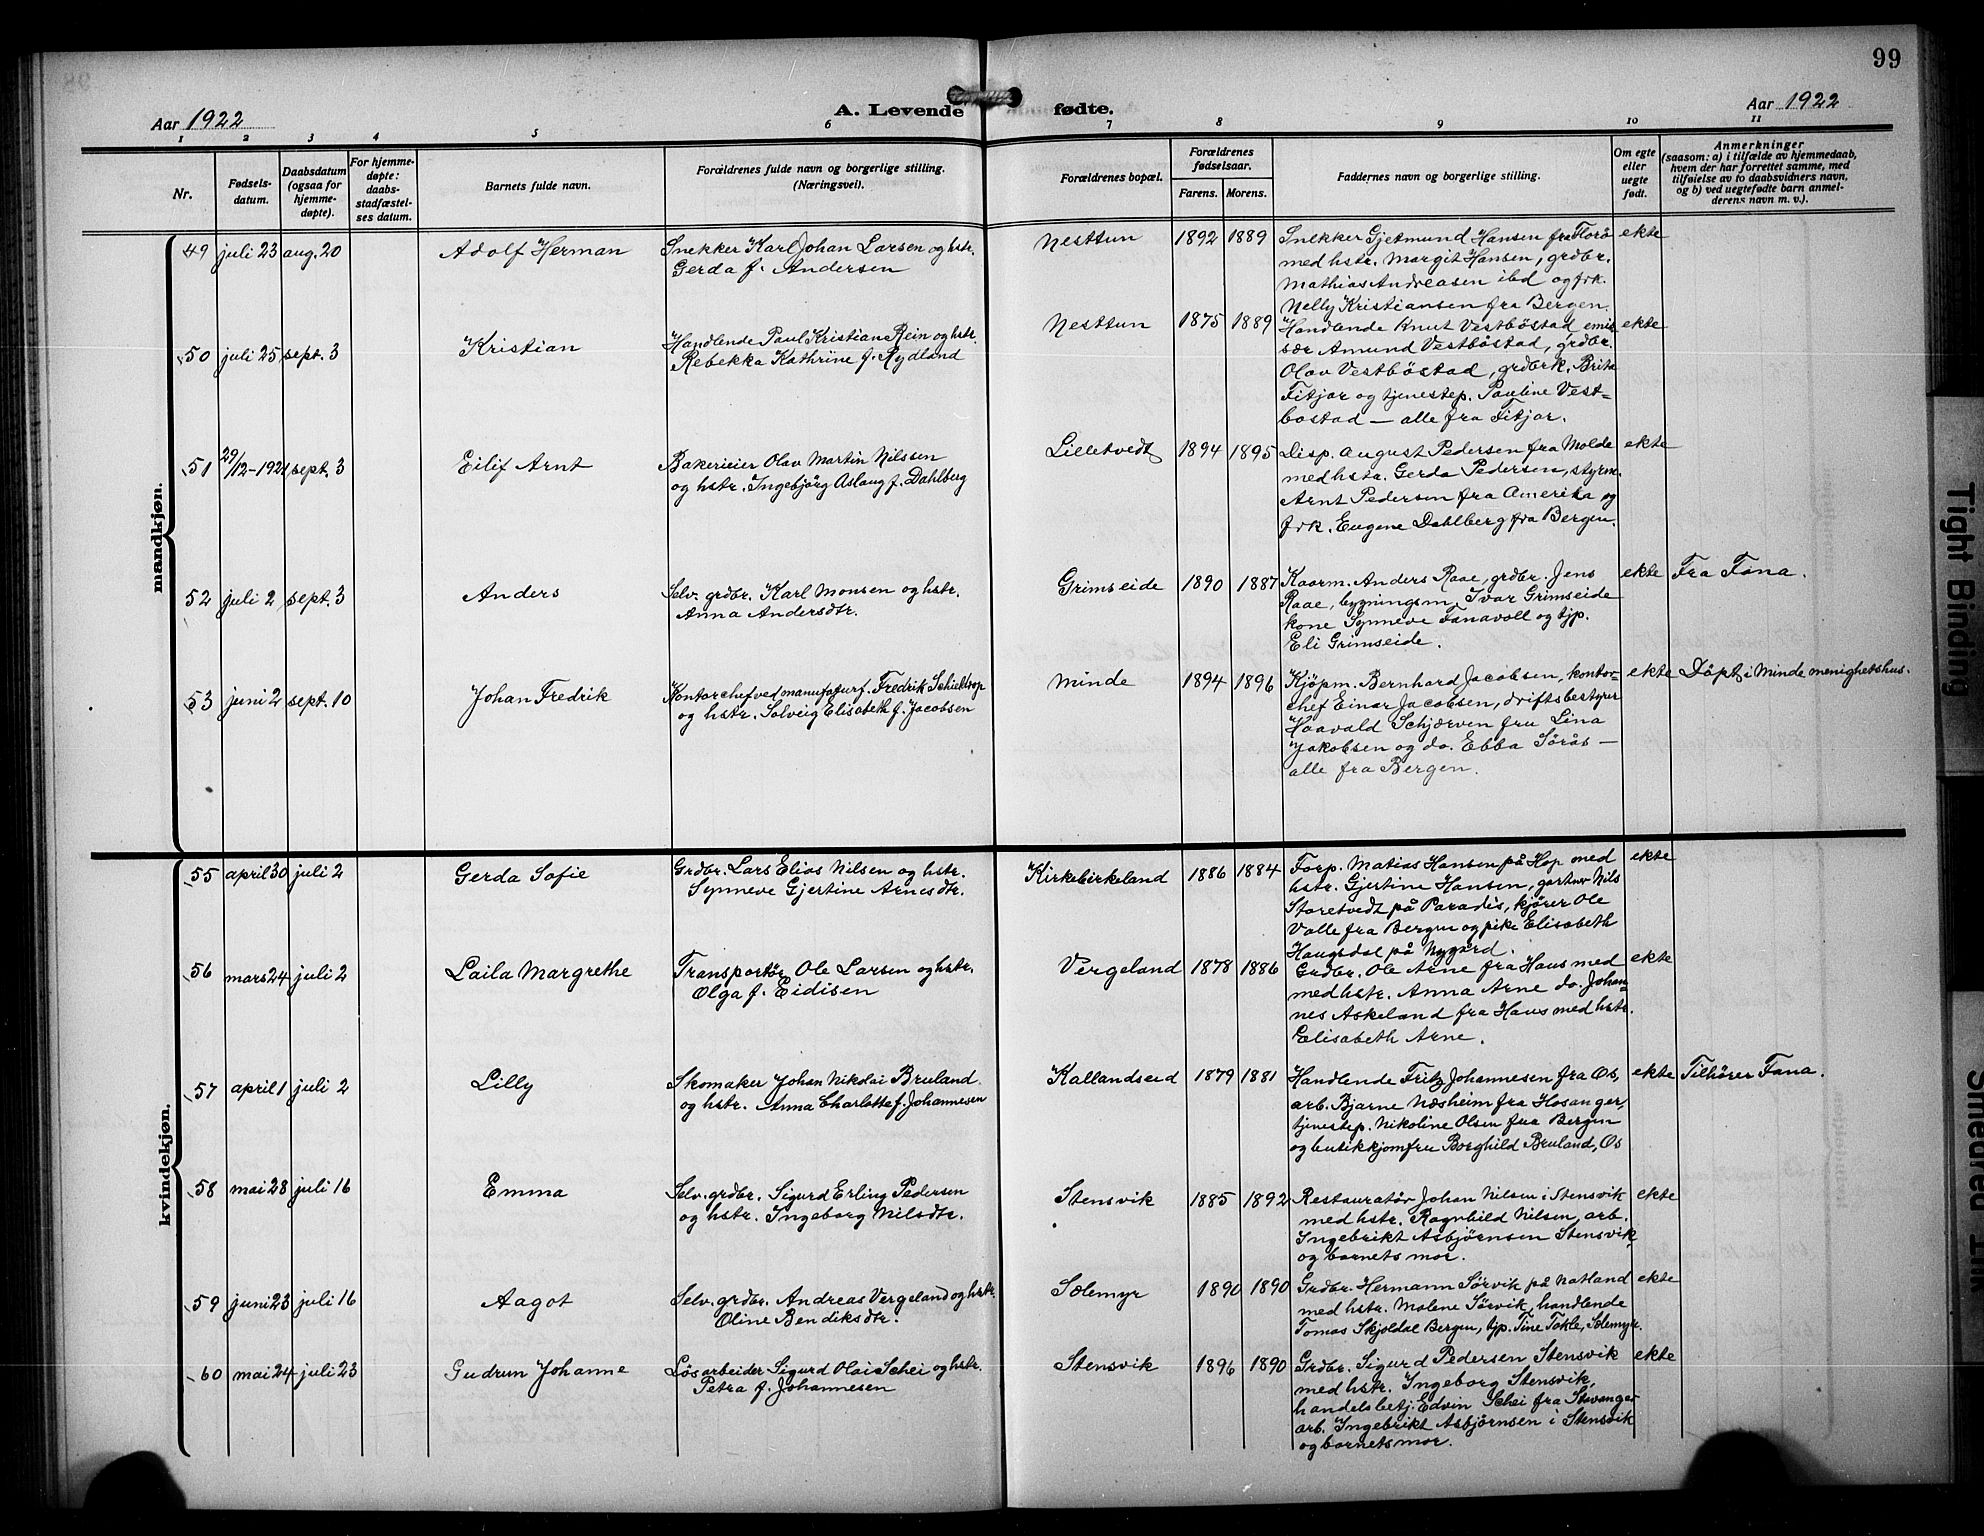 99
Aar 1922
A. Levende fødte.
Aar 1922
1 2 3 4 5 6 7 8 9 10 11
Nr.
Fødsels-
datum.
Daabsdatum
(ogsaa for
hjemme-
døpte).
For hjemme-
døpte:
daabs-
stadfæstel-
ses datum.
Barnets fulde navn.
Forældrenes fulde navn og borgerlige stilling.
(Næringsvei).
Forældrenes bopæl.
Forældrenes
fødselsaar.
Farens. Morens.
Faddernes navn og borgerlige stilling.
Om egte
eller
uegte
født.
Anmerkninger
(saasom: a) i tilfælde av hjemmedaab,
hvem der har forrettet samme, med
tilføielse av to daabsvidners navn,
og b) ved uegtefødte barn anmel-
derens navn m. v.).
mandkjøn.
49 juli 23 aug. 20 Adolf Herman
Snekker Karl Johan Larsen og hstr.
Gerda f. Andersen
Nesttun 1892 1889
Snekker Gjetmund Hansen fra Florö
med hstr. Margit Hansen, grdbr.
Mathias Andreasen ibd og frk.
Nelly Kristiansen fra Bergen.
ekte
50 juli 25 sept. 3 Kristian
Handlende Paul Kristian Rein og hstr.
Rebekka Kathrine f. Rydland
Nesttun 1875 1889
Handlende Knut Vestböstad, emis
sær Amund Vestböstad, grdbr.
Olav Vestböstad, grdbrk. Brita
Fitjar og tjenestep. Pauline Vest=
bostad — alle fra Fitjar.
ekte
51 29/12-1921 sept. 3 Eilif Arnt
Bakerieier Olav Martin Nilssen
og hstr. Ingebjörg Aslaug f. Dahlberg
Lilletvedt 1894 1895
Disp. August Pedersen fra Molde
med hstr. Gerda Pedersen, styrm.
Arnt Pedersen fra Amerika og
frk. Eugene Dahlberg fra Bergen.
ekte
52 juli 2 sept. 3 Anders
Selv. grdbr. Karl Monsen og hstr.
Anna Andersdtr.
Grimseide 1890 1887
Kaarm. Anders Raae, grdbr. Jens
Raae, bygningsm. Ivar Grimseide
kone Synneve Fanavoll og tjp.
Eli Grimseide.
ekte Fra Fana.
53 juni 2 sept. 10 Johan Fredrik
Kontorchef ved manufaturf. Fredrik Schieldrop
og hstr. Solveig Elisabeth f. Jacobsen
Minde 1894 1896
Kjöpm. Bernhard Jacobsen, kontor-
chef Einar Jacobsen, driftsbestyrer
Haavald Schjærven fru Lina
Jakobsen og do. Ebba Sörås —
alle fra Bergen.
ekte Döpt i Minde menighetshus.
kvindekjøn.
55 april 30 juli 2 Gerda Sofie
Grdbr. Lars Elias Nilsen og hstr.
Synneve Gjertine Arnesdtr.
Kirkebirkeland 1886 1884
Forp. Matias Hansen på Hop med
hstr. Gjertine Hansen, gartner Nils
Storetvedt på Paradis, kjører Ole
Valle fra Bergen og pike Elisabeth
Haugsdal på Nygård.
ekte
56 mars 24 juli 2 Laila Margrethe
Transportör Ole Larsen og hstr.
Olga f. Eidisen
Vergeland 1878 1886
Grdbr. Ole Arne fra Haus med
med hstr. Anna Arne do. Johan=
nes Askeland fra Haus med hstr.
Elisabeth Arne.
ekte
57 april 1 juli 2 Lilly
Skomaker Johan Nikolai Bruland.
og hstr. Anna Charlotte f. Johannesen
Kallandseid 1879 1881
Handlende Fritz Johannesen fra Os,
arb. Bjarne Næsheim fra Hosanger,
tjenestep. Nikoline Olsen fra Bergen
og butikkjomfru Borghild Bruland, Os
ekte Tilhörer Fana.
58 mai 28 juli 16 Emma
Selv. grdbr. Sigurd Erling Pedersen
og hstr. Ingeborg Nilsdtr.
Stensvik 1885 1892
Restauratör Johan Nilsen i Stensvik
med hstr. Ragnhild Nilsen, arb.
Ingebrikt Asbjörnsen Stensvik
og barnets mor.
ekte
59 juni 23 juli 16 Aagot
Selv. grdbr. Andreas Vergeland og hstr.
Oline Bendiksdtr.
Sælemyr 1890 1890
Grdbr. Hermann Sörvik på Natland
med hstr. Malene Sörvik, handlende
Tomas Skjoldal Bergen, tjp. Tine Takle, Sælemyr.
ekte
60 mai 24 juli 23 Gudrun Johanne
Lösarbeider Sigurd Olai Schei og hstr.
Petra f. Johannesen
Stensvik 1896 1890
Grdbr. Sigurd Pedersen Stensvik
med hstr. Ingeborg Stensvik,
handelsbetj. Edvin Schei fra Stavanger
arb. Ingebrikt Asbjörnsen i Stensvik
og barnets mor.
ekte
Tight Binding
Smeared Ink